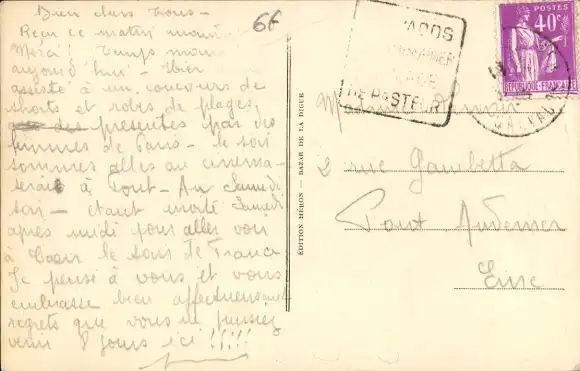 Bien chers Tous -
66
Reçu ce matin
Merci! Temps
aujourd'hui - Hier
assisté à un concours de
shorts et robes de plages
présentées par des
femmes de Paris - le soir
sommes allés au cinema -
serai à Pont-Au Samedi
soir - étant invité Samedi
après midi pour aller voir
à Caen le tour de France
Je pense à vous et vous
embrasse bien affectueusement
regrets que vous ne puissiez
venir 8 jours ici !!!!!
ÉDITION HÉRON - BAZAR DE LA DIGUE
VADOS
DE PASTEUR
POSTES
40c
REPUBLIQUE-FRANÇAISE
2 rue Gambetta
Pont Audemer
Eure